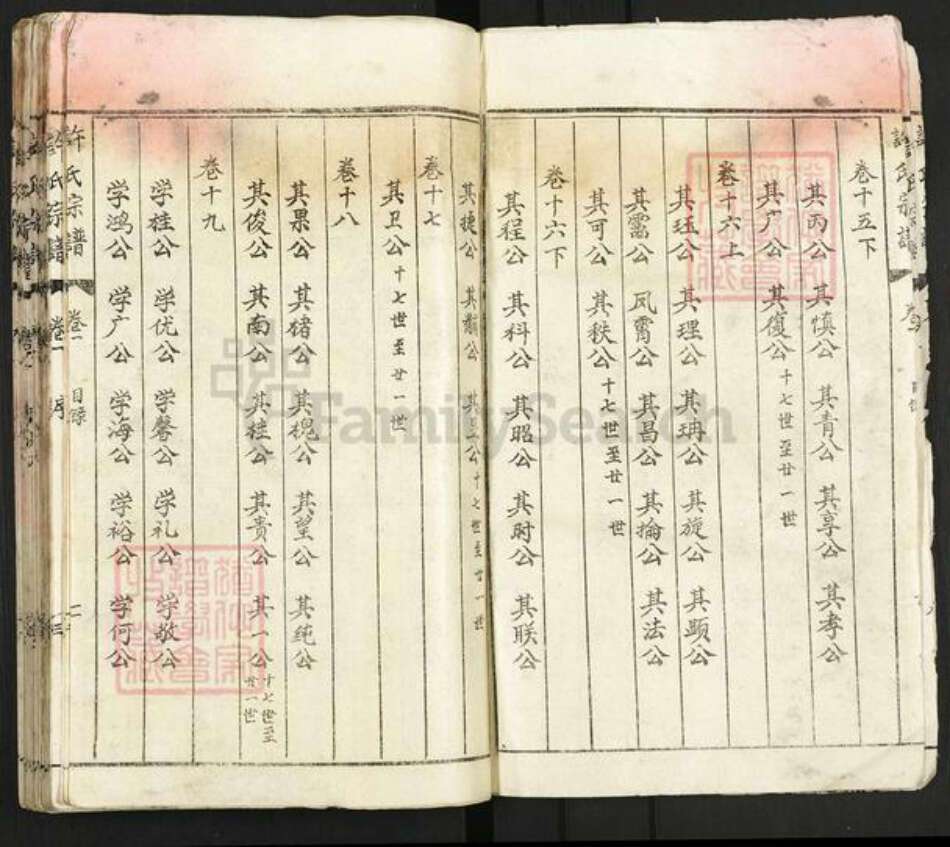 卷十五下
其丙公 其慎公 其青公 其享公 其孝公
其广公 其復公 十七世至廿一世
卷十六上
其珏公 其理公 其珃公 其旋公 其顕公
其靄公 凤霄公 其昌公 其掄公 其法公
其可公 其秩公 十七世至廿一世
卷十六下
其程公 其科公 其昭公 其时公 其联公
其捷公 其公 其公 十七世至廿一世
卷十七
其卫公 十七世至廿一世
卷十八
其累公 其猪公 其槐公 其望公 其纯公
其俊公 其南公 其桂公 其贵公 其一公 十七世至廿一世
卷十九
学桂公 学优公 学馨公 学礼公 学敬公
学鸿公 学广公 学海公 学裕公 学何公
許氏宗譜 卷一 目録 二
FamilySearch